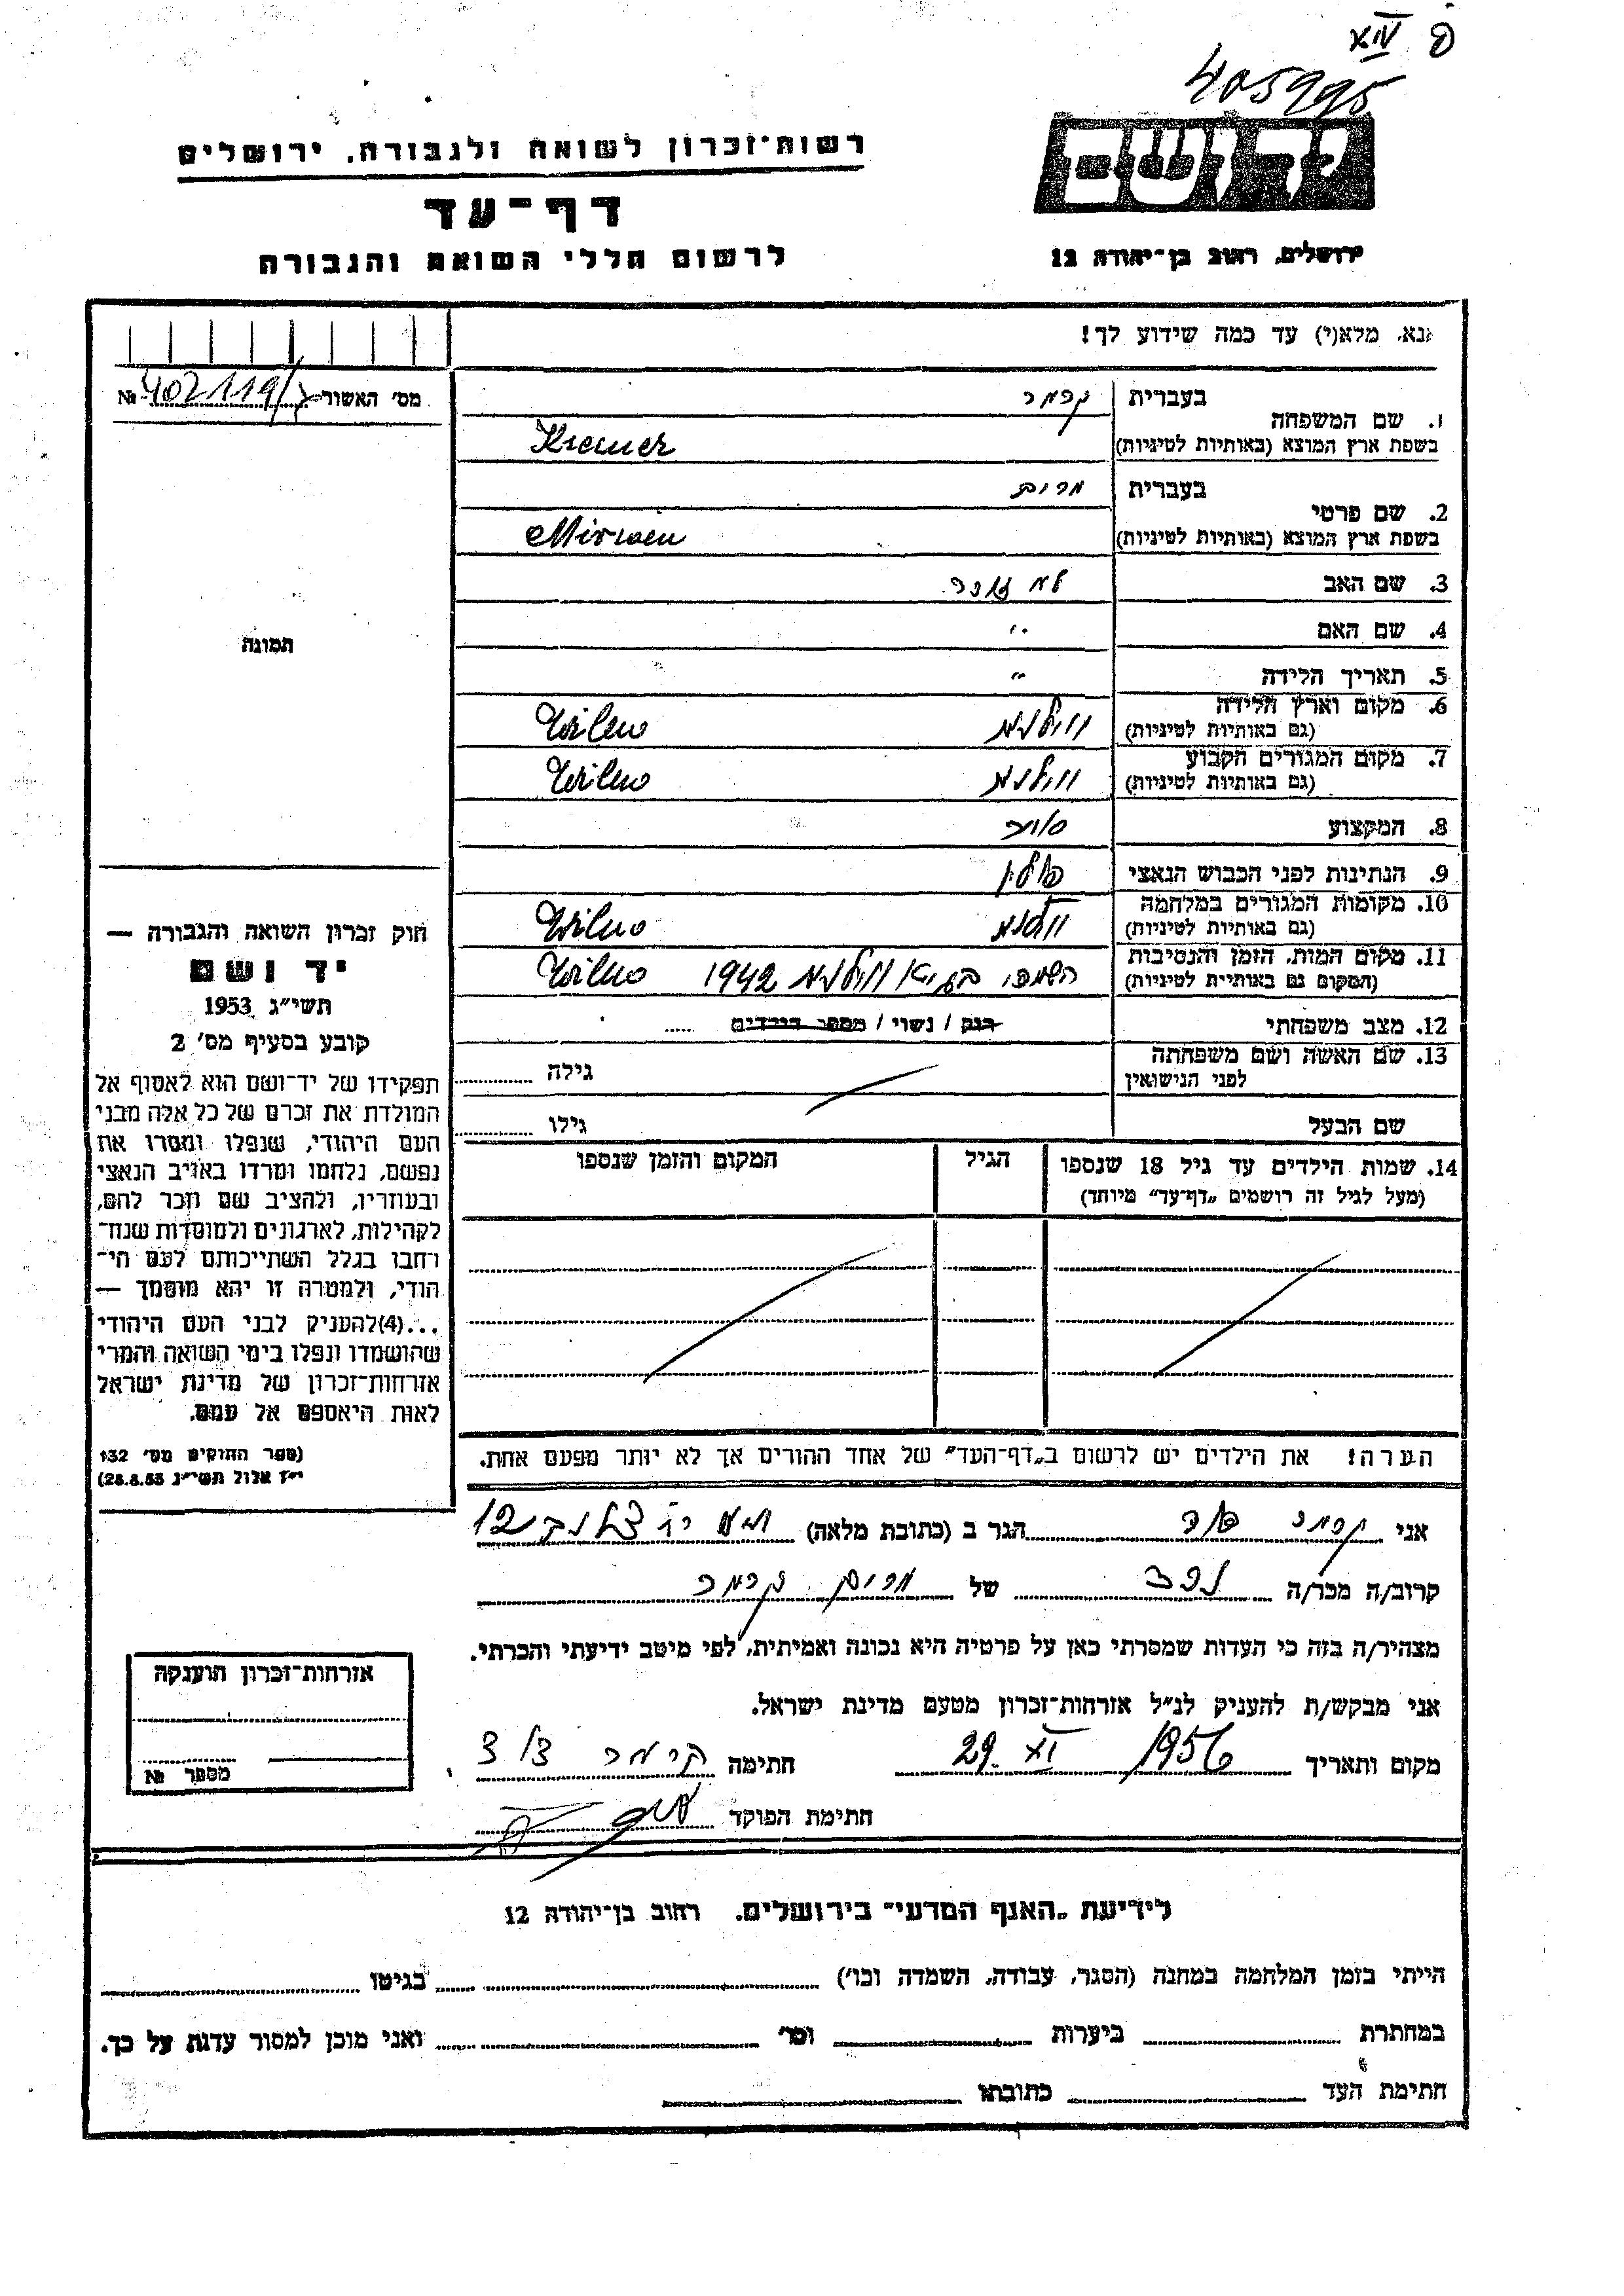 XIV
405995
יד ושם
רשות־זכרון לשואה ולגבורה, ירושלים
דף־עד
לרשום חללי השואה והגבורה
ירושלים, רחוב בן־יהודה 12
נא, מלא(י) עד כמה שידוע לך!
מס' האשור № 402119/
1. שם המשפחה
בעברית קרמר
בשפת ארץ המוצא (באותיות לטיניות) Kremer
2. שם פרטי
בעברית מרים
בשפת ארץ המוצא (באותיות לטיניות) Miriam
3. שם האב לא זוכר
4. שם האם "
5. תאריך הלידה "
6. מקום וארץ הלידה (גם באותיות לטיניות) ווילנא Wilno
7. מקום המגורים הקבוע (גם באותיות לטיניות) ווילנא Wilno
8. המקצוע סוחר
9. הנתינות לפני הכבוש הנאצי פולין
10. מקומות המגורים במלחמה (גם באותיות לטיניות) ווילנא Wilno
11. מקום המות, הזמן והנסיבות (המקום גם באותיות לטיניות) ווילנא 1942 Wilno
12. מצב משפחתי רוק / נשוי / מספר הילדים
13. שם האשה ושם משפחתה לפני הנישואין גילה
שם הבעל גילו
14. שמות הילדים עד גיל 18 שנספו
(מעל לגיל זה רושמים „דף־עד" מיוחד)
הגיל
המקום והזמן שנספו
הערה! את הילדים יש לרשום ב„דף־העד" של אחד ההורים אך לא יותר מפעם אחת.
תמונה
חוק זכרון השואה והגבורה —
יד ושם
תשי"ג 1953
קובע בסעיף מס' 2
תפקידו של יד־ושם הוא לאסוף אל
המולדת את זכרם של כל אלה מבני
העם היהודי, שנפלו ומסרו את
נפשם, נלחמו ומרדו באויב הנאצי
ובעוזריו, ולהציב שם וזכר להם,
לקהילות, לארגונים ולמוסדות שנח־
רחבו בגלל השתייכותם לעם הי־
הודי, ולמטרה זו יהא מוסמך —
...(4)להעניק לבני העם היהודי
שהושמדו ונפלו בימי השואה והמרי
אזרחות־זכרון של מדינת ישראל
לאות היאספם אל עמם.
(ספר החוקים מס' 132
י"ז אלול תשי"ג 28.8.53)
אני קרמר הגר ב (כתובת מלאה) 12
קרוב/ה מכר/ה נכד של מרים קרמר
מצהיר/ה בזה כי העדות שמסרתי כאן על פרטיה היא נכונה ואמיתית, לפי מיטב ידיעתי והכרתי.
אני מבקש/ת להעניק לנ"ל אזרחות־זכרון מטעם מדינת ישראל.
מקום ותאריך 29. XI 1956 חתימה קרמר
חתימת הפוקד
אזרחות־זכרון הוענקה
מספר №
לידיעת „האגף המדעי" בירושלים, רחוב בן־יהודה 12
הייתי בזמן המלחמה במחנה (הסגר, עבודה, השמדה וכו') בגיטו
במחתרת ביערות וכו' ואני מוכן למסור עדות על כך.
חתימת העד כתובתו